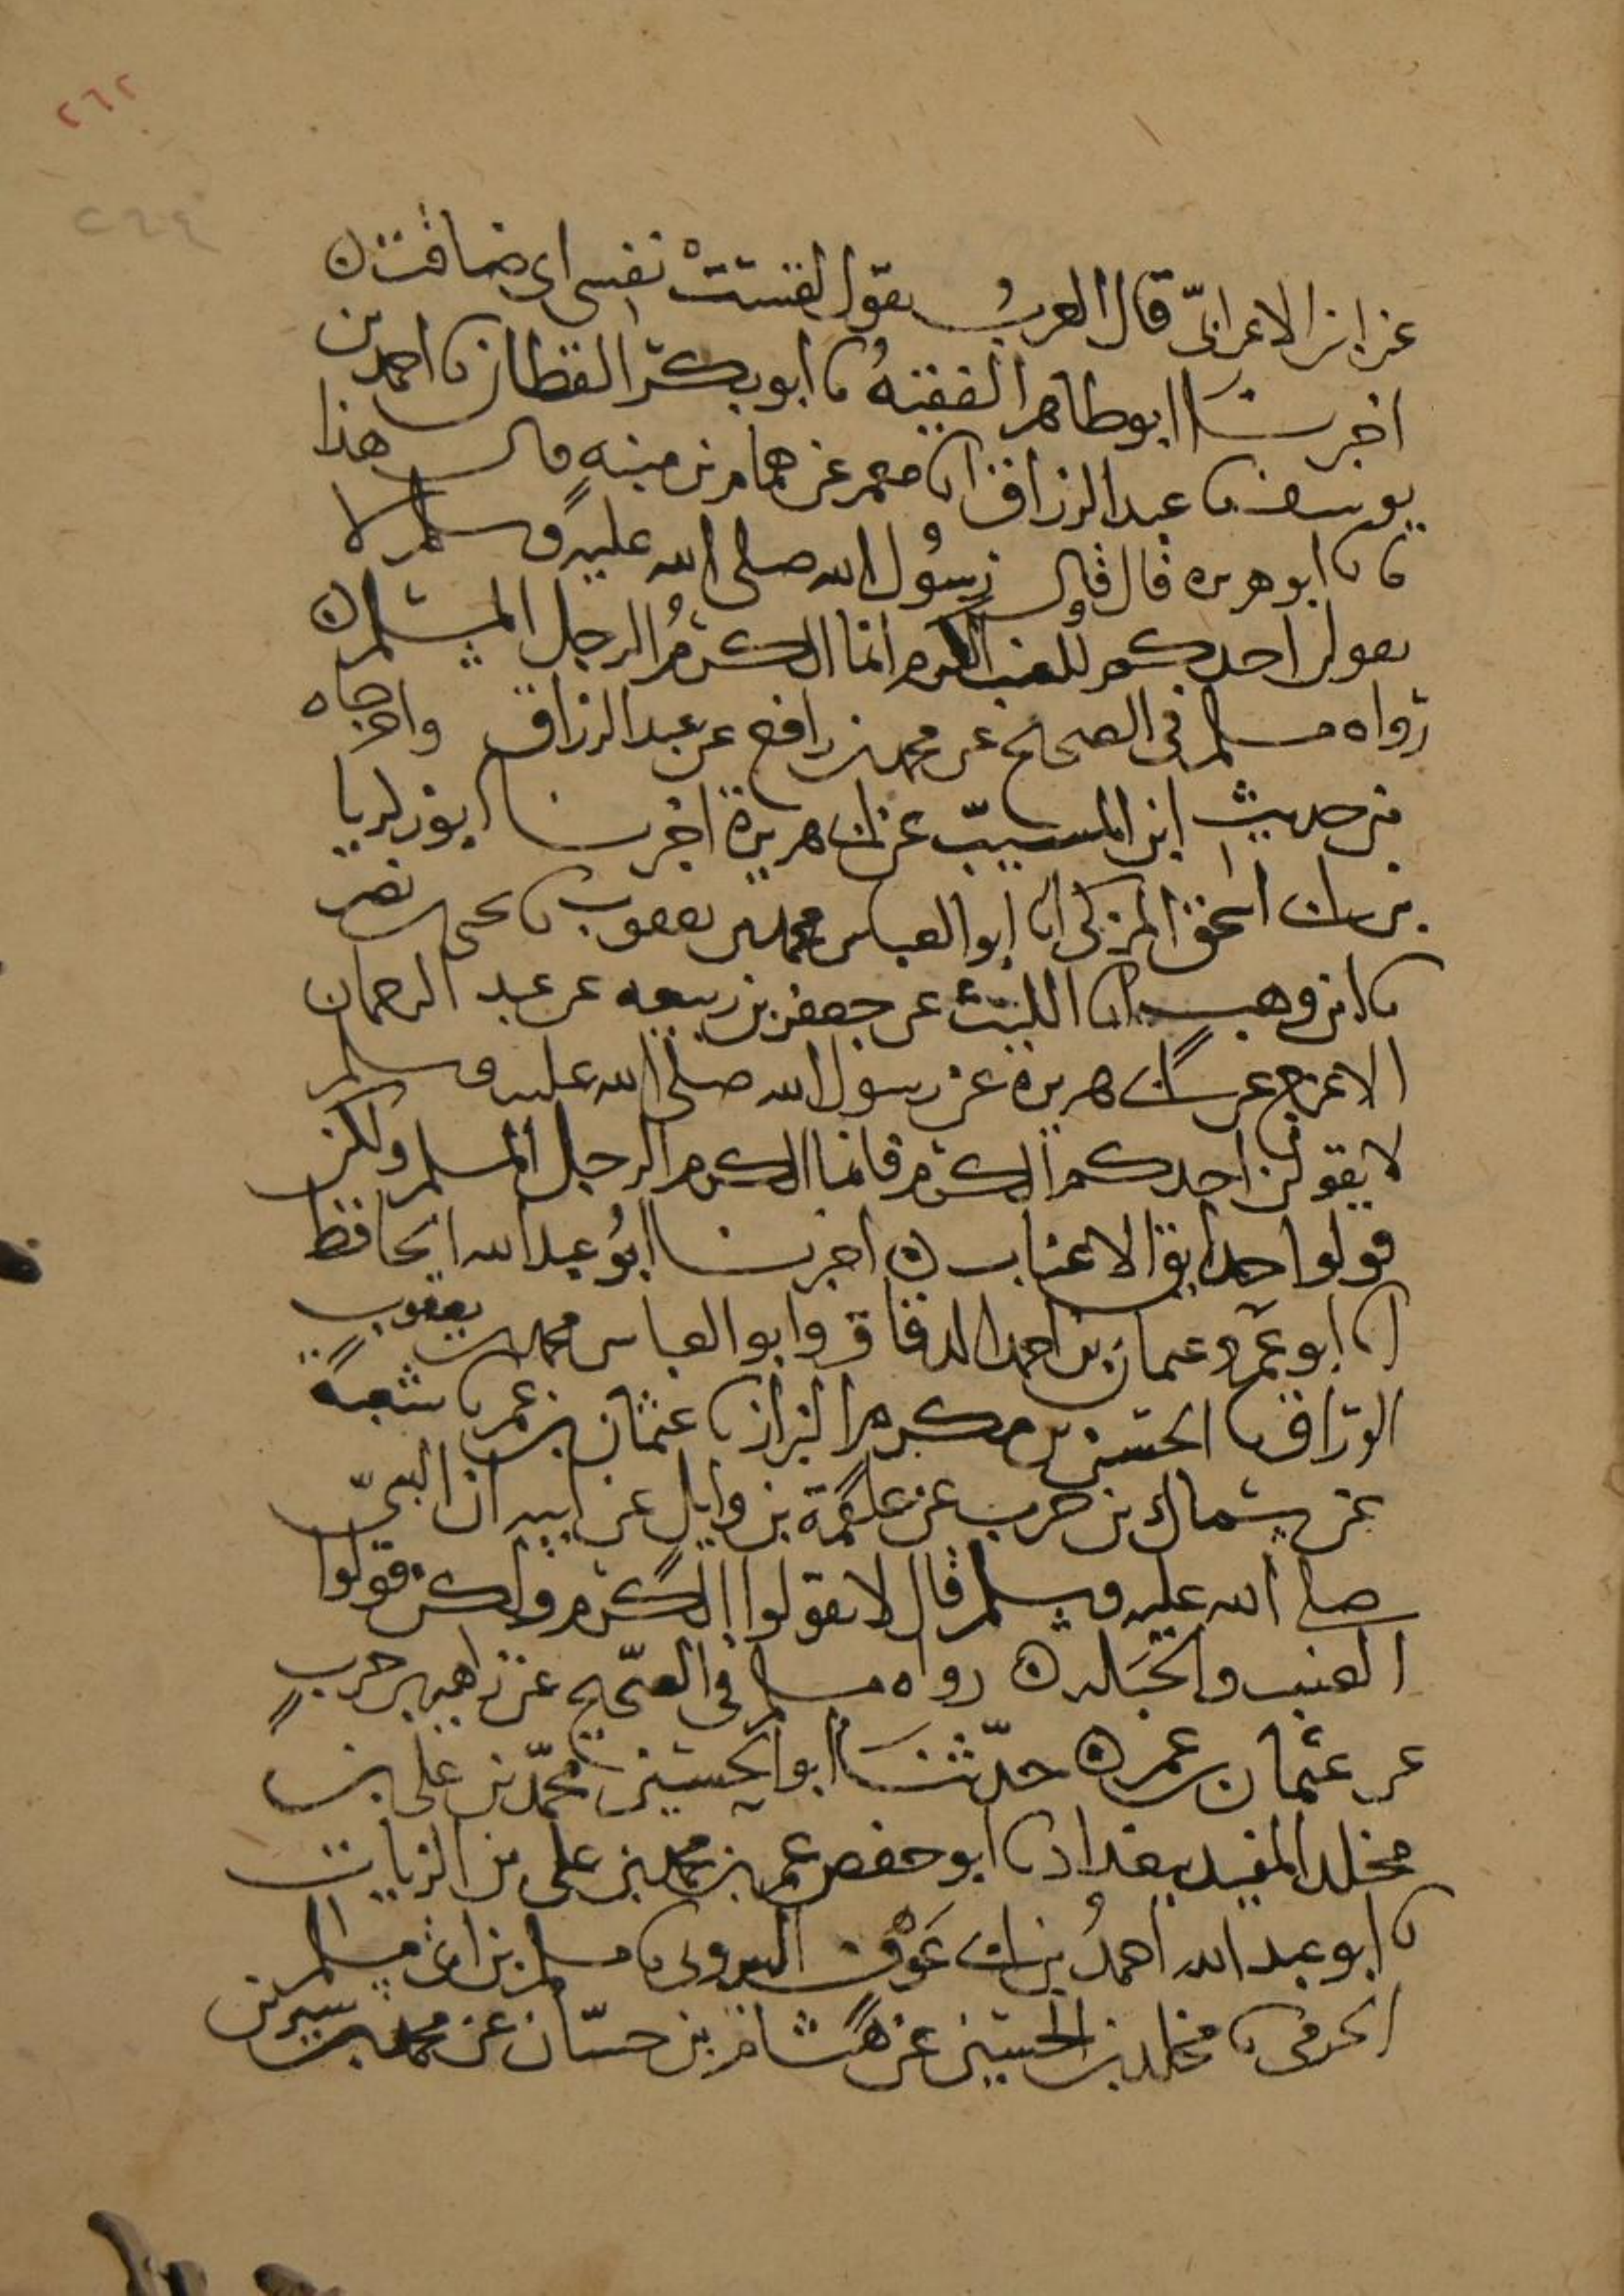 ٢٦٢
٢٦٤
عن ابن الاعرابيّ قال العربُ تقول لقستْ نفسي اى ضاقت ن
اخبرنا ابو طاهر الفقيهُ نا ابو بكر القطان نا احمد بن
يوسف نا عبد الرزاق انا معمر عن همام بن منبهٍ قال هذا
ما نا ابو هريرة قال قال رسُول الله صلى الله عليه وسلم لا
يقولن احدكم للعنب الكرم انما الكرمُ الرجل المسلم ن
رواه مسلم في الصحيح عن محمد بن رافع عن عبد الرزاق واخرجاه
من حديث ابن المسيّب عن ابي هريرة اخبرنا ابو زكريا
بن ابي اسحق المزكى انا ابو العباس محمد بن يعقوب نا بحر بن نصر
نا ابن وهب انا الليث عن جعفر بن ربيعه عن عبد الرحمان
الاعرج عن ابي هريرة عن رسول الله صلى الله عليه وسلم
لا يقولن احدكم الكرم فانما الكرم الرجل المسلم ولكن
قولوا حدايق الاعناب ن اخبرنا ابُو عبد الله الحافظ
انا ابو عمرو عثمان بن احمد الدقاق وابو العباس محمد بن يعقوبٍ
الوراق نا الحسن بن مكرم البزاز نا عثمان بن عمر نا شعبة
عن سماك بن حرب عن علقمة بن وايل عن ابيه ان النبيّ
صلى الله عليه وسلم قال لا تقولوا الكرم ولكن قولوا
العنب والحَبله ن رواه مسلم في الصّحيح عن زهير بن حربٍ
عن عثمان بن عمر ن حدّثنا ابو الحسين محمّد بن على بن
مخلد المفيد ببغداد نا ابو حفص عمر بن محمد بن على بن الزيات
نا ابو عبد الله احمدُ بن ابي عَوْف البزوري نا مسلم بن ابي مسلم
الجرمى نا مخلد بن الحسين عن هشام بن حسّان عن محمد بن سيرين